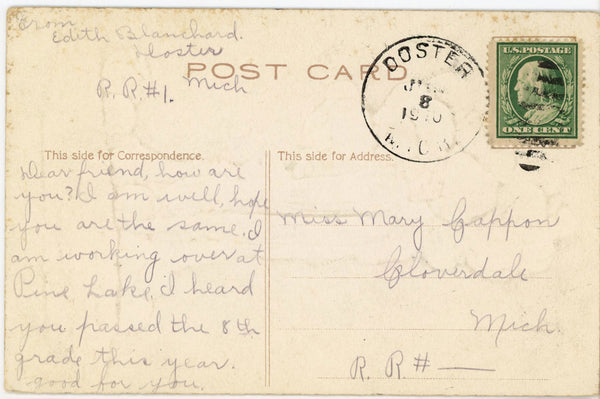 From
Edith Blanchard.
Doster
R. R. #1. Mich
POST CARD
DOSTER
8
1910
MICH.
U.S. POSTAGE
ONE CENT
This side for Correspondence.
Dear friend, how are
you? I am well, hope
you are the same. I
am working over at
Pine Lake. I heard
you passed the 8th
grade this year.
good for you.
This side for Address.
Miss Mary Cappon
Cloverdale
Mich.
R. R# —